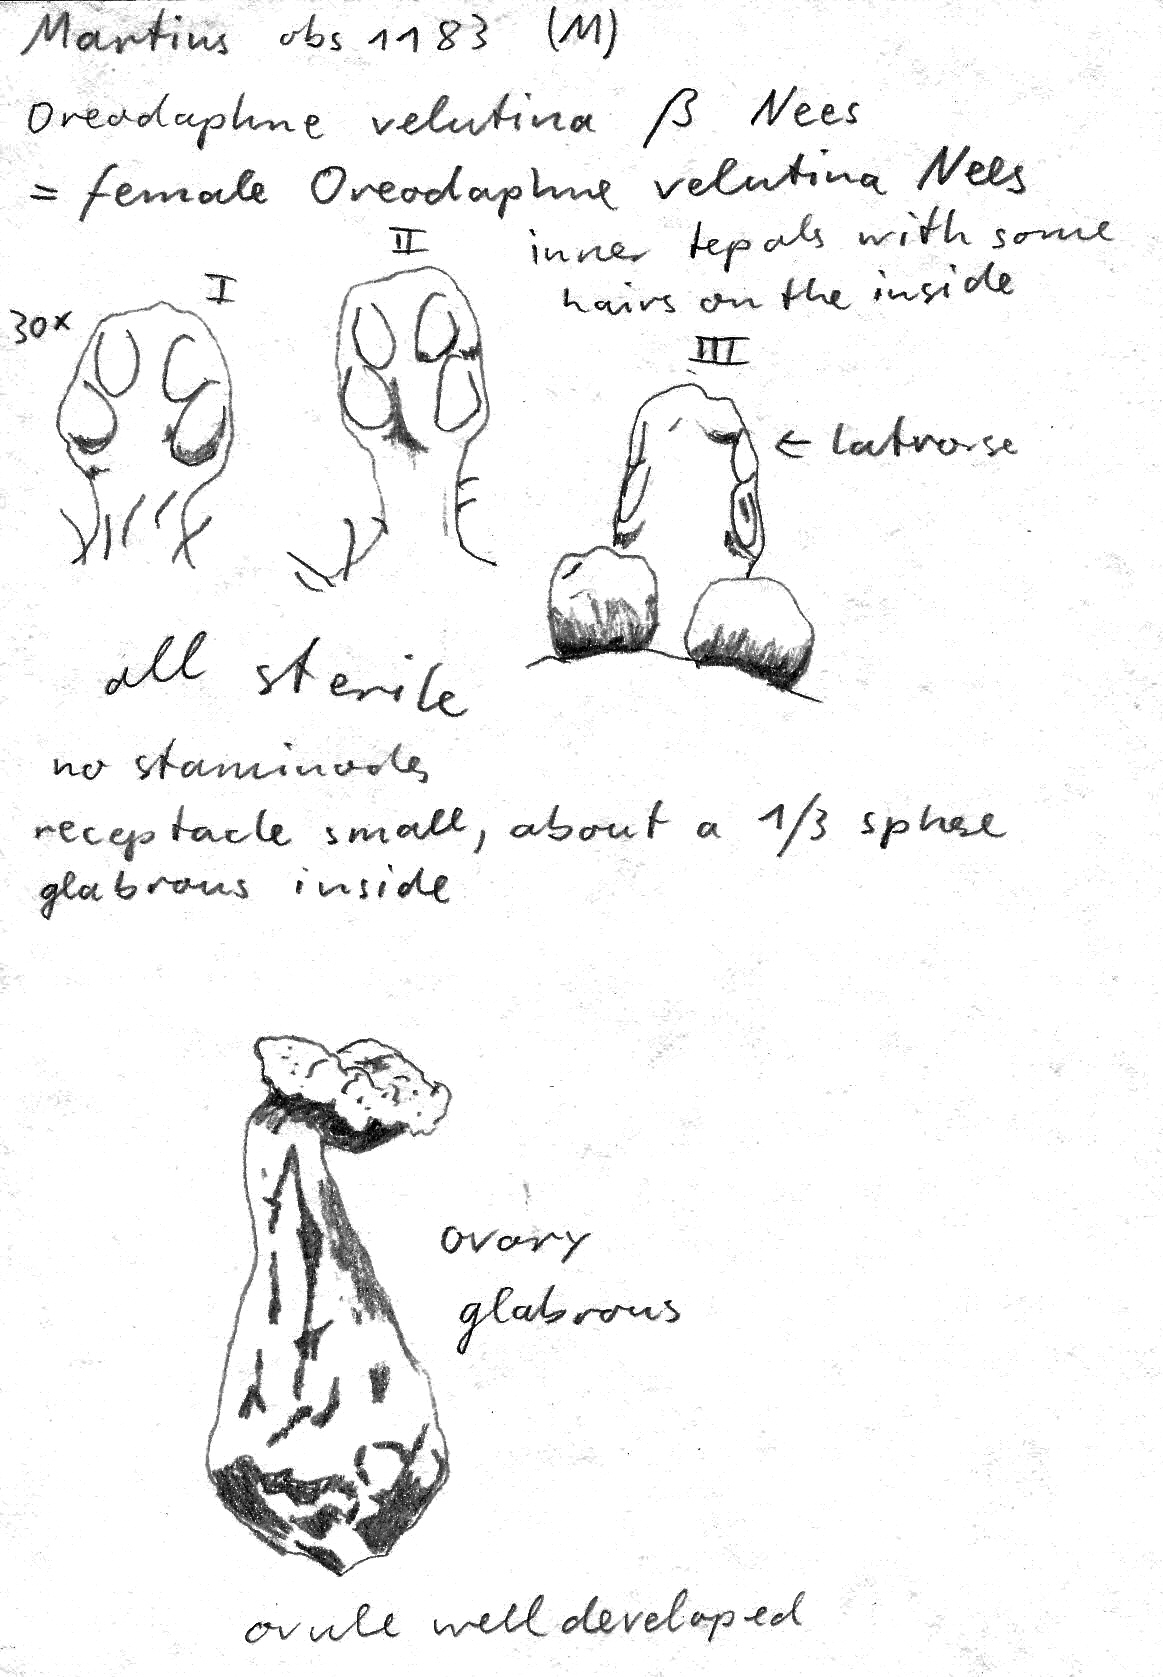 Martius obs 1183 (M)
Oreodaphne velutina β Nees
= female Oreodaphne velutina Nees
inner tepals with some
hairs on the inside
30x
I
II
III
← latrorse
all sterile
no staminodes
receptacle small, about a 1/3 sphere
glabrous inside
ovary
glabrous
ovule well developed